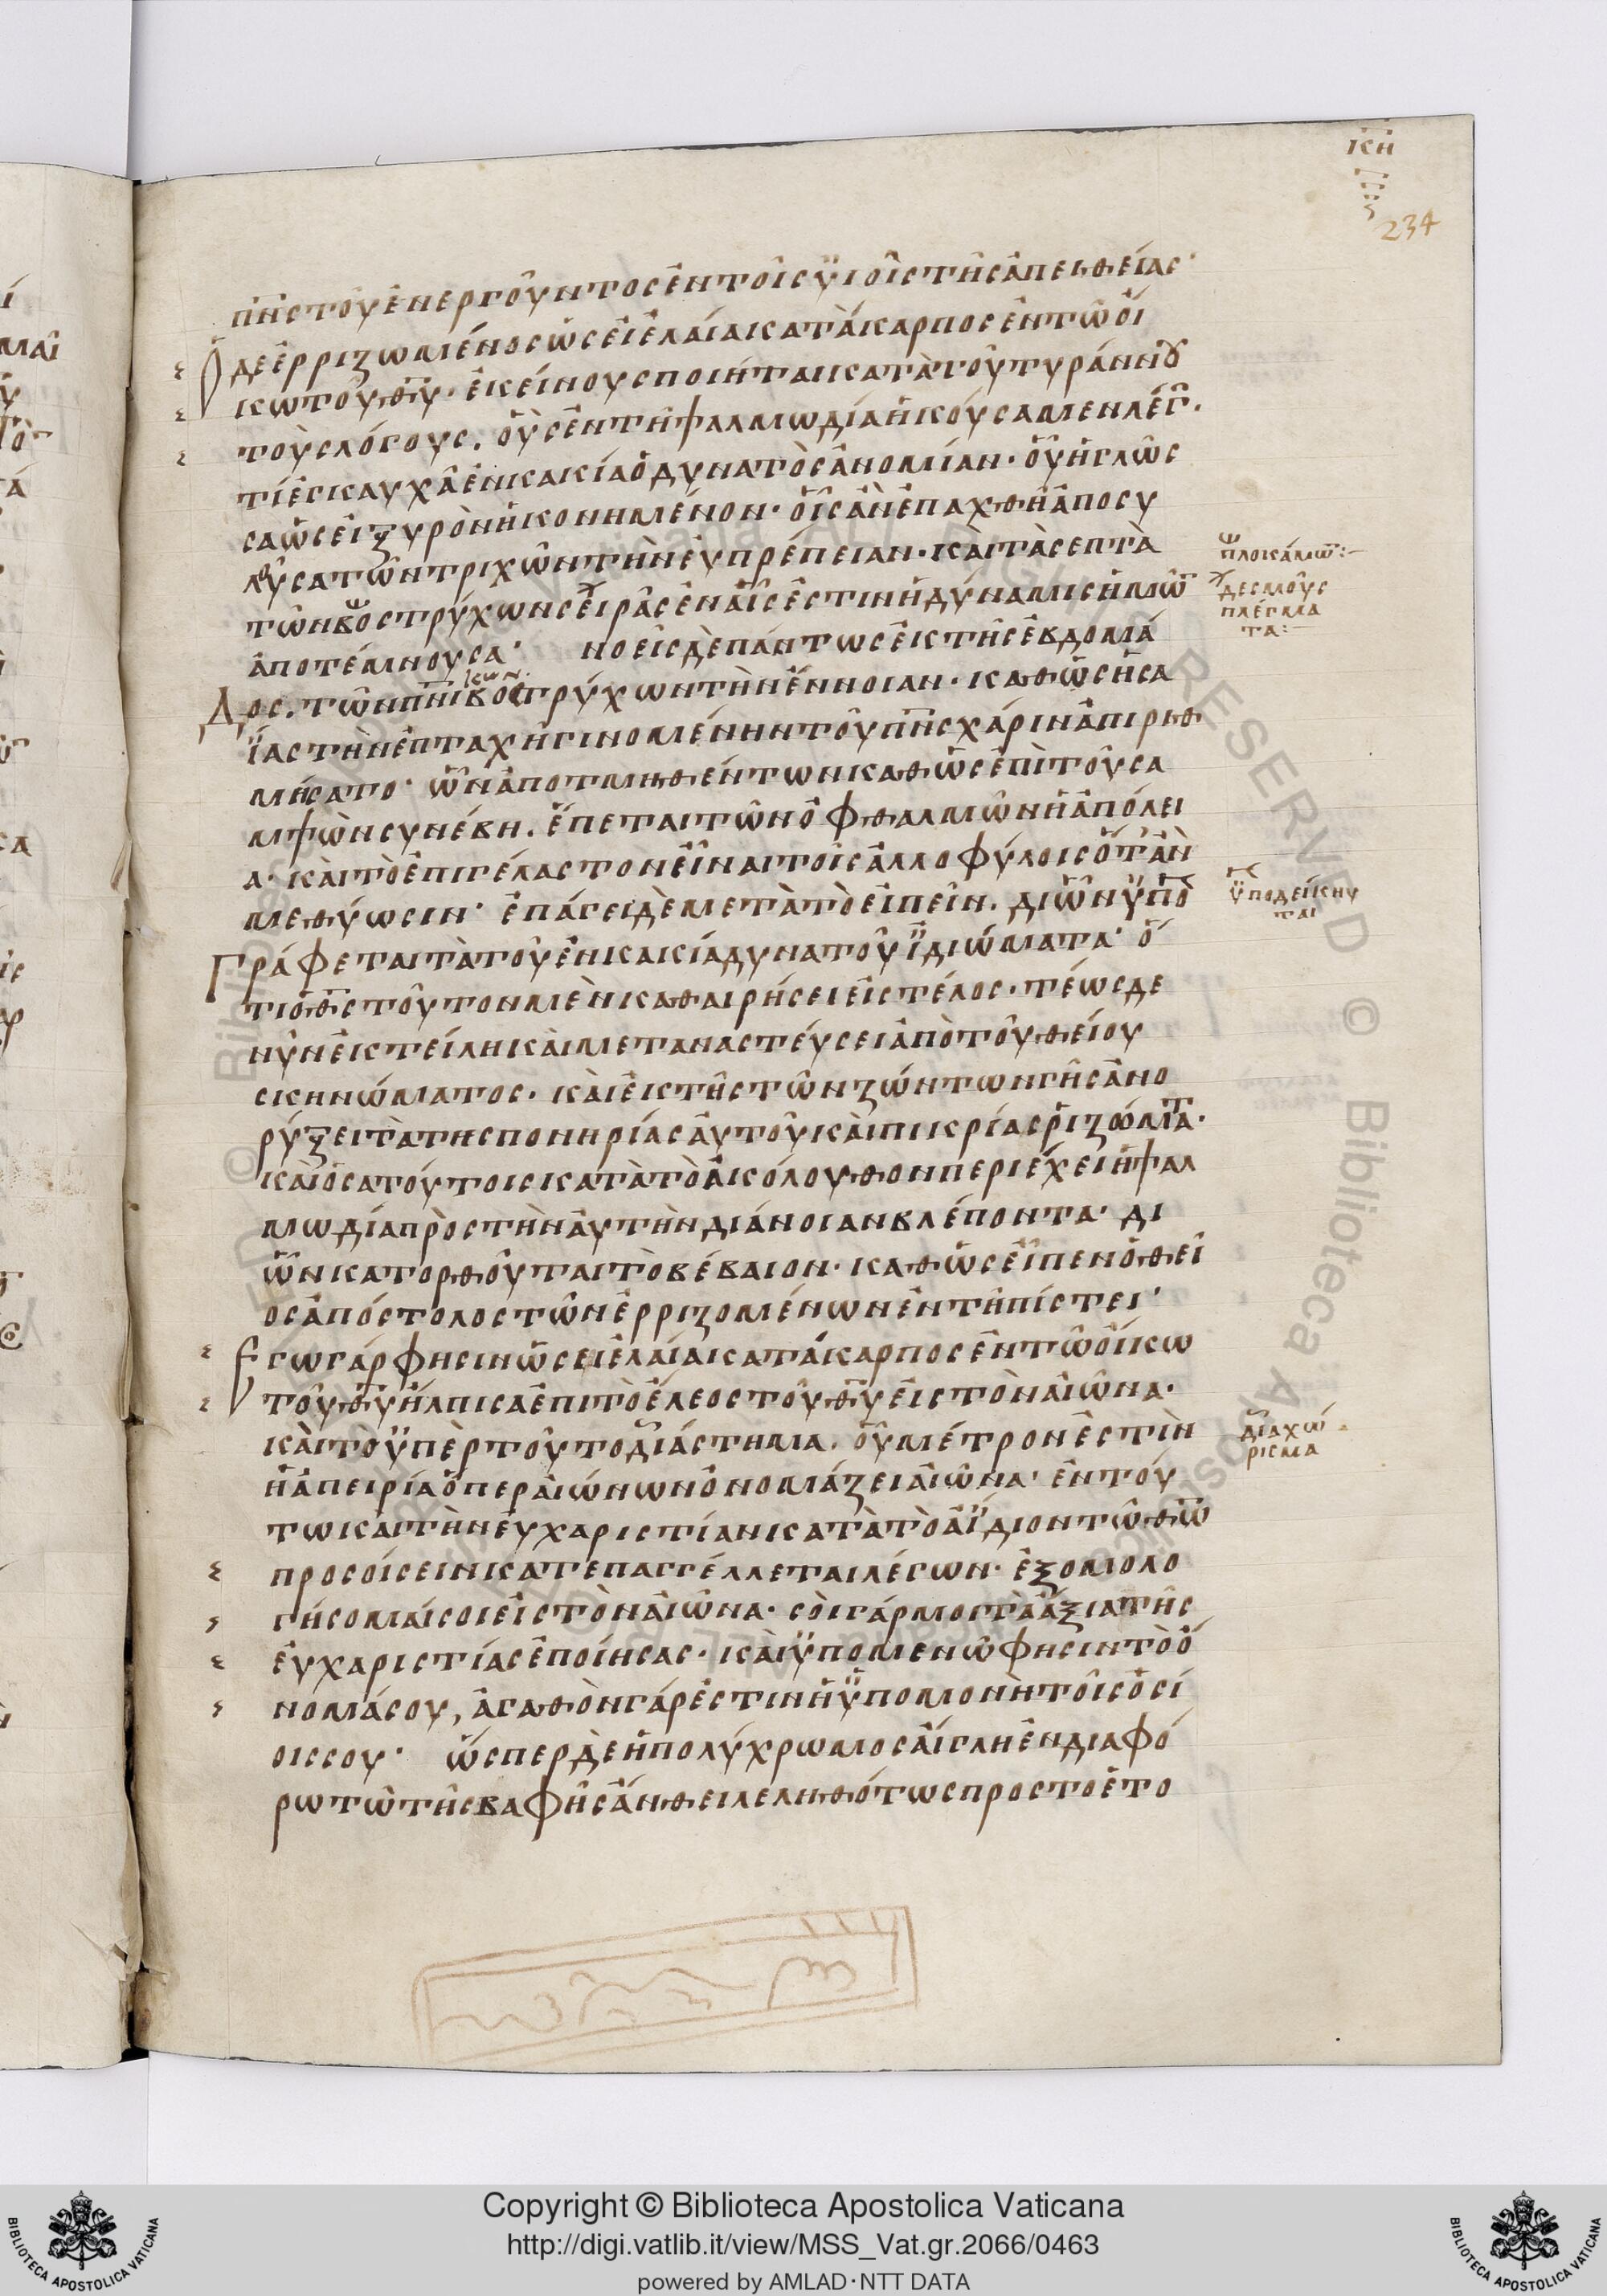 ιϛη
234
πν̅ς τοῦ ἐνεργοῦντος ἐν τοῖς ὑιοῖς τῆς ἀπειθείας·
Ὁ δὲ ἐρριζωμένος ὡσεὶ ἐλαία κατάκαρπος ἐν τῶ οἴ
κω τοῦ θυ̅· ἐκείνους ποιῆται κατὰ τοῦ τυράννου
τοὺς λόγους. οὓς ἐν τῆ ψαλμωδία ἠκούσαμεν λέγ·
τί ἐγκαυχᾶ ἐν κακία ὁ δυνατὸς ἀνομίαν· οὗ ἡ γλῶσ
σα ὡσεὶ ξυρὸν ἠκονημένον· οἷς ἂν ἐπαχθῆ ἀποσυ
λοῦσα τῶν τριχῶν τὴν εὐπρέπειαν· καὶ τὰς επτὰ
τῶν βοστρύχων σειρὰς ἐν αἷς ἐστιν ἡ δύναμις ἡμῶ
ἀποτέμνουσα· νοεῖς δὲ πάντως ἐκ τῆς ἑβδομά
Δος. τῶν πνικῶν βοστρύχων τὴν ἔννοιαν· καθὼς ἡσα
ΐας τὴν ἑπταχῆ γινομένην τοῦ πν̅ς χάριν ἀπιριθ
μήσατο· ὧν ἀποτμηθέντων καθὼς ἐπὶ τοῦ σα
μψὼν συνέβη. ἕπεται τῶν ὀφθαλμῶν ἡ ἀπόλει
α· καὶ τὸ ἐπιγέλαστον εἶναι τοῖς ἀλλοφύλοις ὅτ' ἂν
μεθύωσιν· ἐπάγει δὲ μετὰ τὸ εἰπεῖν. δι ὧν ὑπὸ
Γράφεται τὰ τοῦ ἐν κακία δυνατοῦ ϊδιώματα· ὅ
τι ὁ θς̅ τοῦτον μὲν καθαιρήσει εἰς τέλος· τέως δε
νῦν ἐκτείλη καὶ μεταναστέυσει ἀπὸ τοῦ θείου
σκηνώματος· καὶ ἐκ τῆς τῶν ζώντων γῆς ἀνο
ρύξει τὰ της πονηρίας ἀυτοῦ καὶ πικρίας ῥιζώματα·
καὶ ὅσα τούτοις κατὰ τὸ ἀκόλουθον περιέχει ἡ ψαλ
μωδία πρὸς τὴν ἀυτὴν διάνοιαν βλέποντα· δι
ὧν κατορθοῦται τὸ βέβαιον· καθὼς εἶπεν ὁ θεῖ
ος ἀπόστολος τῶν ἐρριζομένων ἐν τῆ πίστει·
Εγω γάρ φησιν ὡσεὶ ἐλαία κατάκαρπος ἐν τῶ οἴκω
τοῦ θυ̅ ἤλπισα ἐπι τὸ ἔλεος τοῦ θυ̅ εἰς τὸν αἰῶνα·
καὶ τὸ ὑπὲρ τοῦτο διάστημα. οὗ μέτρον ἐστὶν
ἡ ἀπειρία ὅπερ αἰώνων ὀνομάζει αἰῶνα· ἐν τού
τω καὶ τὴν ἐυχαριστίαν κατὰ τὸ ἀΐδιον τῶ θω̅
προσοίσειν κατεπαγγέλλεται λέγων· ἐξομολο
γήσομαί σοι εἰς τὸν αἰῶνα· σὸι γάρ μοι τὰ ἄξια τῆς
ἐυχαριστίας ἐποίησας· καὶ ὑπομενῶ φησιν τὸ ὄ
νομά σου, ἀγαθὸν γάρ ἐστιν ἡ ὑπομονὴ τοῖς ὁσί
οις σου· ὥσπερ δὲ ἡ πολύχρωμος ἀίγλη ἐν διαφό
ρω τῶ τῆς βαφῆς ἄνθει λεληθότως προς το ἑτο
πλοκάμω:
δεσμοὺς
πλέγμα
τα:
ὑποδείκνυ
ται
διαχώ
ρισμα
Copyright © Biblioteca Apostolica Vaticana
http://digi.vatlib.it/view/MSS_Vat.gr.2066/0463
powered by AMLAD·NTT DATA
BIBLIOTECA APOSTOLICA VATICANA
BIBLIOTECA APOSTOLICA VATICANA